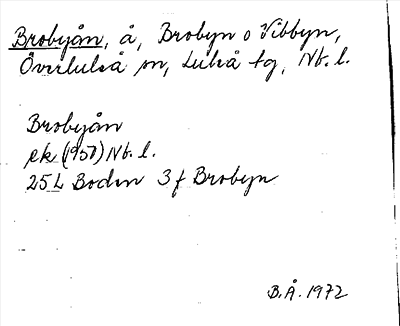 Brobyån, å, Brobyn o Vibbyn,
Överluleå sn, Luleå tg, Nb. l.
Brobyån
ek (1950) Nb. l.
25 L Boden 3 f Brobyn
B.Å. 1972